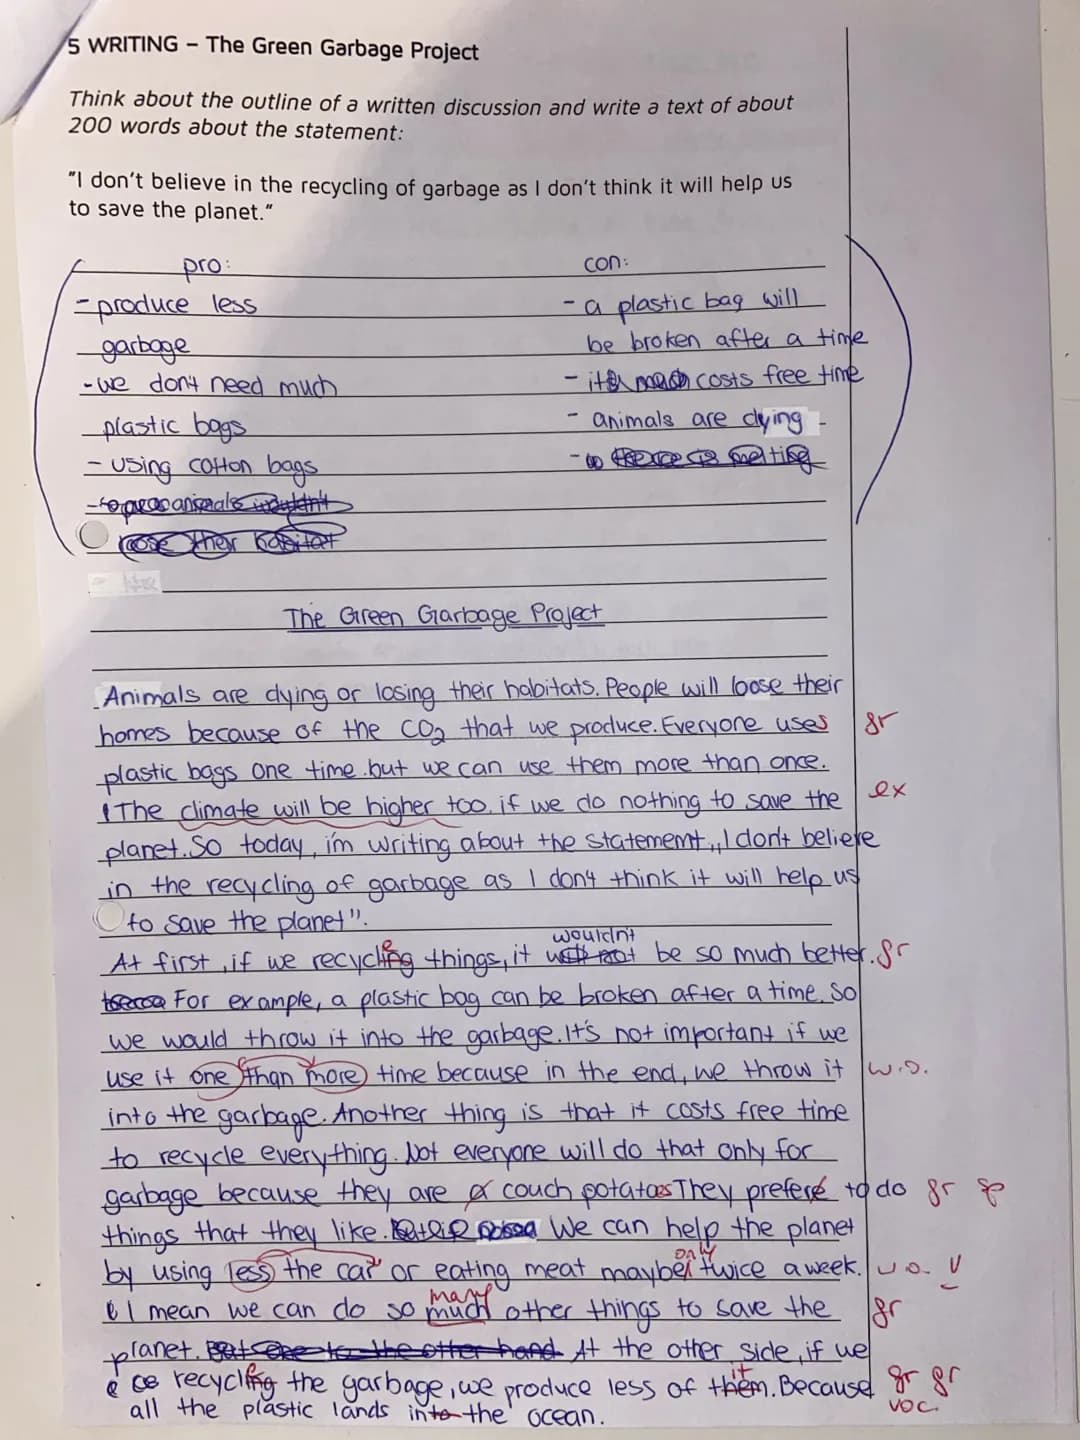 5 WRITING – The Green Garbage Project
Think about the outline of a written discussion and write a text of about
200 words about the statement:
"I don't believe in the recycling of garbage as I don't think it will help us
to save the planet."
pro: con:
- produce less - a plastic bag will
garbage be broken after a time
- we don't need much - it costs free time
plastic bags - animals are dying
- using cotton bags - melting
animals wouldn't
loose their habitat
The Green Garbage Project
Animals are dying or losing their habitats. People will loose their
homes because of the CO2 that we produce. Everyone uses gr
plastic bags one time but we can use them more than once.
The climate will be higher too, if we do nothing to save the ex
planet. So today, i'm writing about the statememt „I don't believe
in the recycling of garbage as I don't think it will help us
to save the planet".
wouldn't
At first, if we recycle things, it be so much better. gr
For example, a plastic bag can be broken after a time. So
we would throw it into the garbage. It's not important if we
use it one than more time because in the end, we throw it w.o.
into the garbage. Another thing is that it costs free time
to recycle everything. Not everyone will do that only for
garbage because they are a couch potatoes They prefere to do gr sp
things that they like. We can help the planet
only
by using less the car or eating meat maybe twice a week. w.o. V
many
I mean we can do so much other things to save the gr
planet. But one to the other hand At the other side, if we
it
recycle the garbage, we produce less of them. Because gr gr
all the plastic lands into the ocean. voc